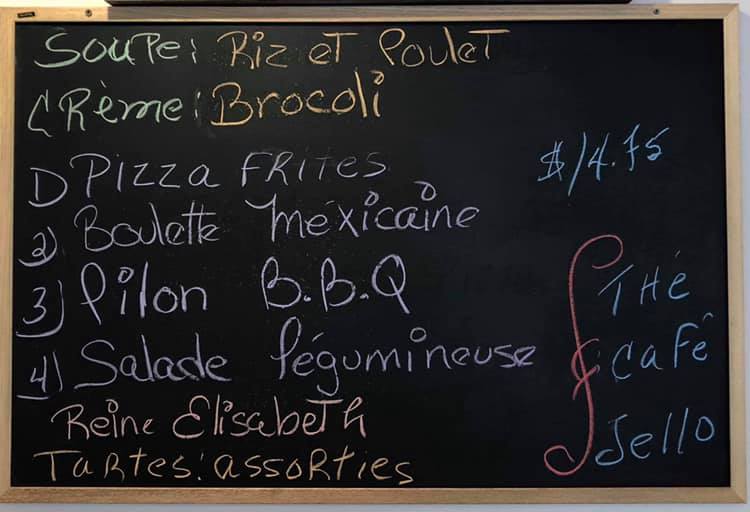 Soupe: Riz et Poulet
Crème: Brocoli
1) Pizza Frites
$14.75
2) Boulette Méxicaine
3) Pilon B.B.Q
4) Salade légumineuse
Thé
Café
Jello
Reine Elisabeth
Tartes: assorties